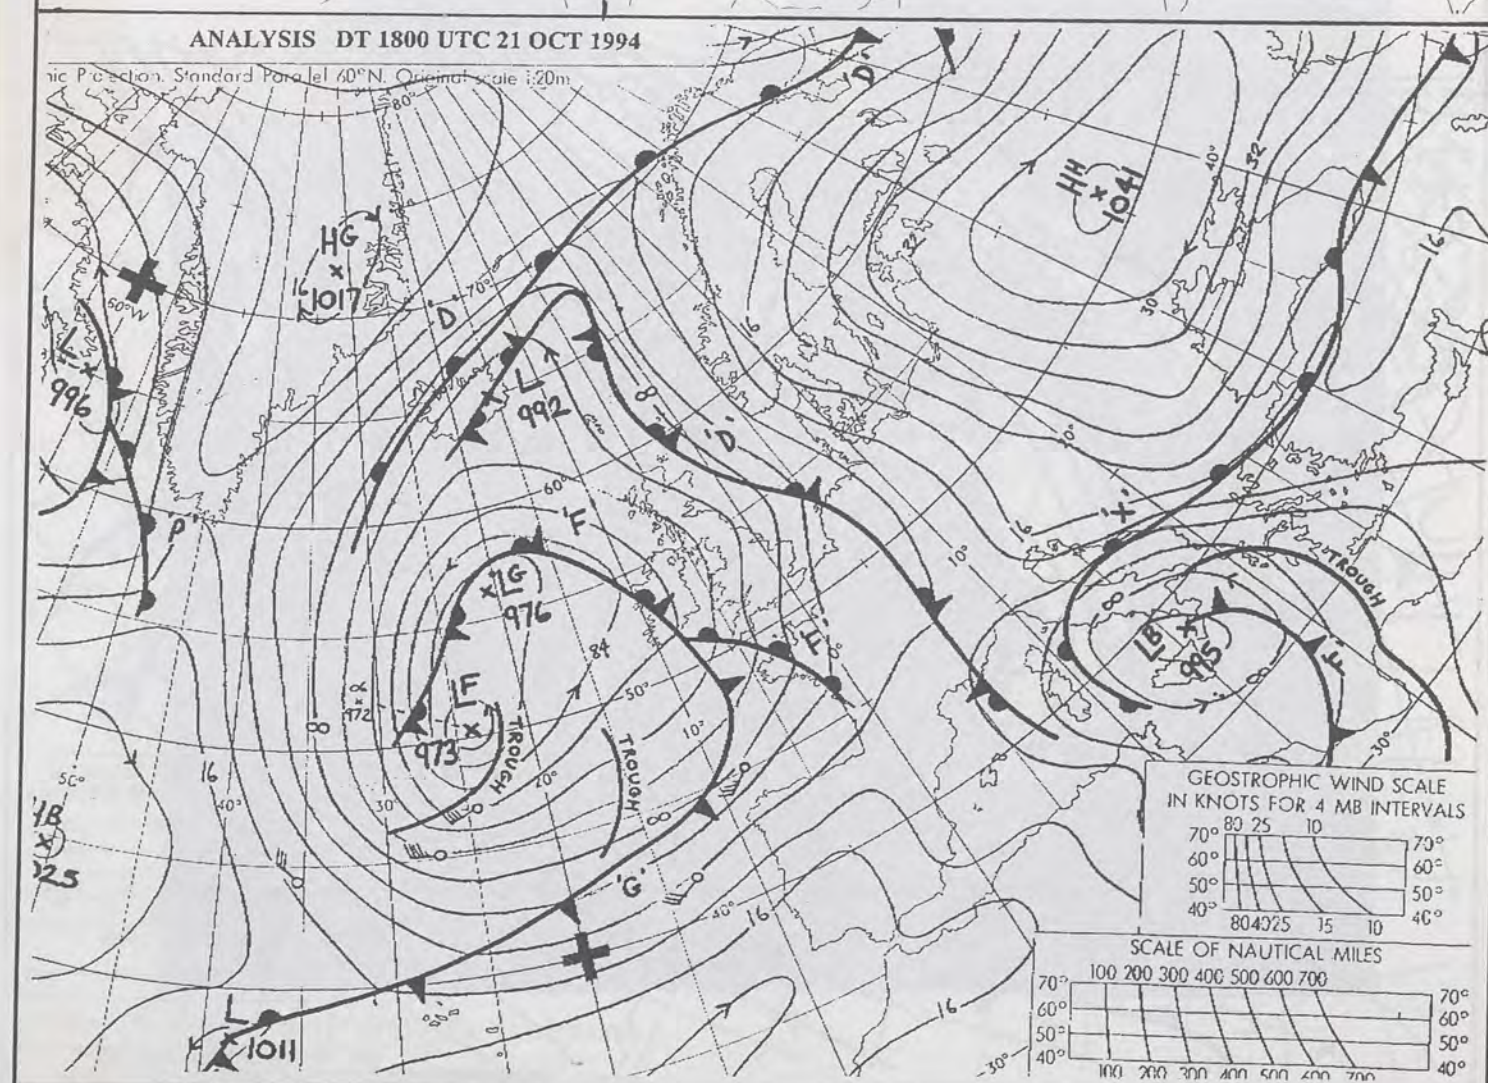 ANALYSIS DT 1800 UTC 21 OCT 1994
Projection. Standard Parallel 60°N. Original scale 1:20m
80°
'D'
HH
1041
40°
32
32
16
HG
16
1017
50°W
70°
'D'
996
L
992
8
'D'
16
30°
20°
60°
'P'
'F'
'X'
16
10°
LG
976
8
TROUGH
LB
995
8
'F'
0°
84
LF
973
972
8
TROUGH
TROUGH
50°
10°
20°
30°
40°
50°
16
8
30°
HB
1025
'G'
40°
16
16
30°
L
1011
GEOSTROPHIC WIND SCALE
IN KNOTS FOR 4 MB INTERVALS
80 25 10
70° 70°
60° 60°
50° 50°
40° 40°
80 40 25 15 10
SCALE OF NAUTICAL MILES
100 200 300 400 500 600 700
70° 70°
60° 60°
50° 50°
40° 40°
100 200 300 400 500 600 700